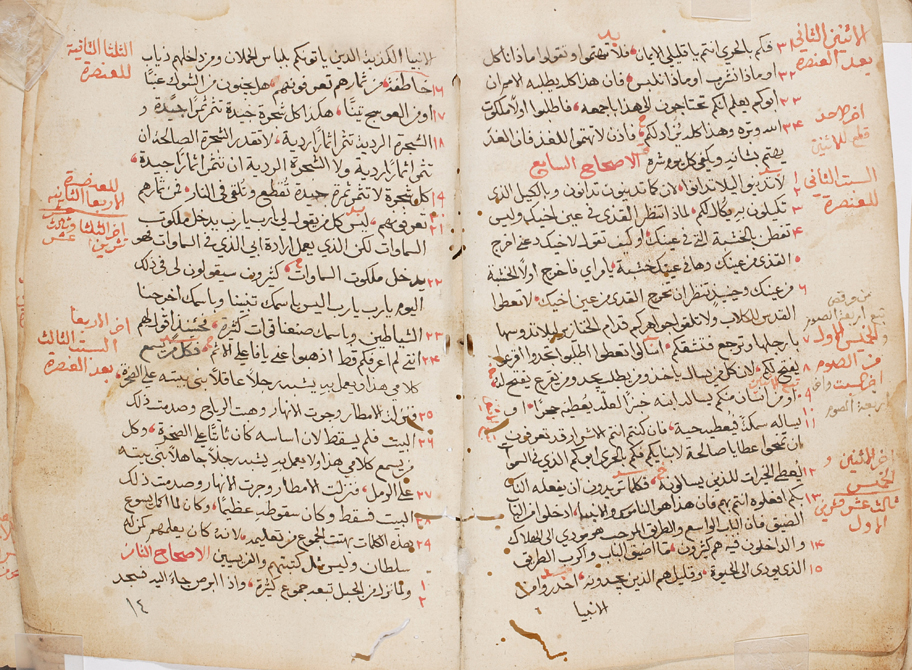 الاثنين الثاني
بعد العنصرة
اخر الاحد
السبت الثاني
للعنصرة
من الصوم
٣٠ فكم بالحري انتم يا قليلي الايمان فلا تهتموا وتقولوا ماذا ناكل
او ماذا نشرب او ماذا نلبس ٣٢ فان هذا كله يطلبه الامران
ابوكم يعلم انكم تحتاجون الى هذا باجمعه ٣٣ فاطلبوا اولا ملكوت
الله وبره وهذا كله يزاد لكم ٣٤ فاذن لا تهتموا للغد فان الغد
يهتم بشانه ويكفي كل يوم شره الاصحاح السابع
١ لا تدينوا ليلا تدانوا ٢ لان كما تدينون تدانون وبالكيل الذي
تكيلون به يكال لكم ٣ لماذا تنظر القذى في عين اخيك وليس
تفطن بالخشبة التي في عينك ٤ او كيف تقول لاخيك دعني اخرج
القذى من عينك وها في عينك خشبة ٥ يا مراي فاخرج اولا الخشبة
من عينك وحينيذ تنظر ان تخرج القذى من عين اخيك ٦ لا تعطوا
القدس للكلاب ولا تلقوا جواهركم قدام الخنازير ليلا تدوسها
بارجلها وترجع فتشقكم ٧ اسالوا تعطوا اطلبوا تجدوا اقرعوا
يفتح لكم ٨ لان كل من يسال ياخذ ومن يطلب يجد ومن يقرع يفتح له
٩ او من انسان منكم يساله ابنه خبزا العله يعطيه حجرا ١٠ او
يساله سمكة فيعطيه حية ١١ فان كنتم انتم الاشرار قد تعرفون
ان تمنحوا عطايا صالحة لابنايكم فكم بالحري ابوكم الذي في السما
يعطي الخيرات للذين يسالونه ١٢ فكلما تريدون ان يفعله الناس
بكم افعلوه انتم بهم فان هذا هو الناموس والانبيا ١٣ ادخلوا من الباب
الضيق فان الباب الواسع والطريق الرحب هو مودي الى الهلاك
والداخلون فيه هم كثيرون ١٤ ما اضيق الباب واكرب الطريق
الذي يودي الى الحيوة وقليل هم الذين يجدونه ١٥ احذروا من
الانبيا
الثلثا الثانية
للعنصرة
للعنصرة
الاربعا الثانيه
اخر الثلثا وثالث
عشر تشرين
اخر الاربعا
السبت الثالث
بعد العنصرة
الانبيا الكذبة الذين ياتونكم بلباس الحملان ومن داخلهم ذياب
خاطفة ١٦ من ثمارهم تعرفونهم هل يجنون من الشوك عنبا
او من العوسج تينا ١٧ هكذا كل شجرة جيدة تثمر ثمرا جيدة و
الشجرة الردية تثمر اثمارا ردية ١٨ لا تقدر الشجرة الصالحة ان
تثمر اثمارا ردية ولا الشجرة الردية ان تثمر اثمارا جيدة
١٩ كل شجرة لا تثمر ثمرة جيدة تقطع وتلقى في النار ٢٠ فمن ثمارهم
تعرفونهم ٢١ ليس كل من يقول لي يا رب يا رب يدخل ملكوت
السماوات لكن الذي يعمل ارادة ابي الذي في السماوات فهو
يدخل ملكوت السماوات ٢٢ كثيرون سيقولون لي في ذلك
اليوم يا رب يا رب اليس باسمك تنبينا وباسمك اخرجنا
الشياطين وباسمك صنعنا قوات كثيرة ٢٣ فحينيذ اقول لهم
انني لم اعرفكم قط اذهبوا عني يا فاعلي الاثم ٢٤ فكل من يسمع
كلامي هذا ويعمل به يشبه رجلا عاقلا بنى بيته على الصخرة
٢٥ فنزلت الامطار وجرت الانهار وهبت الرياح وصدمت ذلك
البيت فلم يسقط لان اساسه كان ثابتا على الصخرة ٢٦ وكل
من يسمع كلامي هذا ولا يعمل به يشبه رجلا جاهلا بنى بيته
على الرمل ٢٧ فنزلت الامطار وجرت الانهار وصدمت ذلك
البيت فسقط وكان سقوطه عظيما ٢٨ وكان لما اكمل يسوع
هذه الكلمات بهتت الجموع من تعليمه ٢٩ لانه كان يعلمهم كمن له
سلطان وليس مثل كتبتهم والفريسيين الاصحاح الثامن
١ ولما نزل من الجبل تبعه جموع كثيرة ٢ واذا ابرص جاء اليه فسجد
١٤